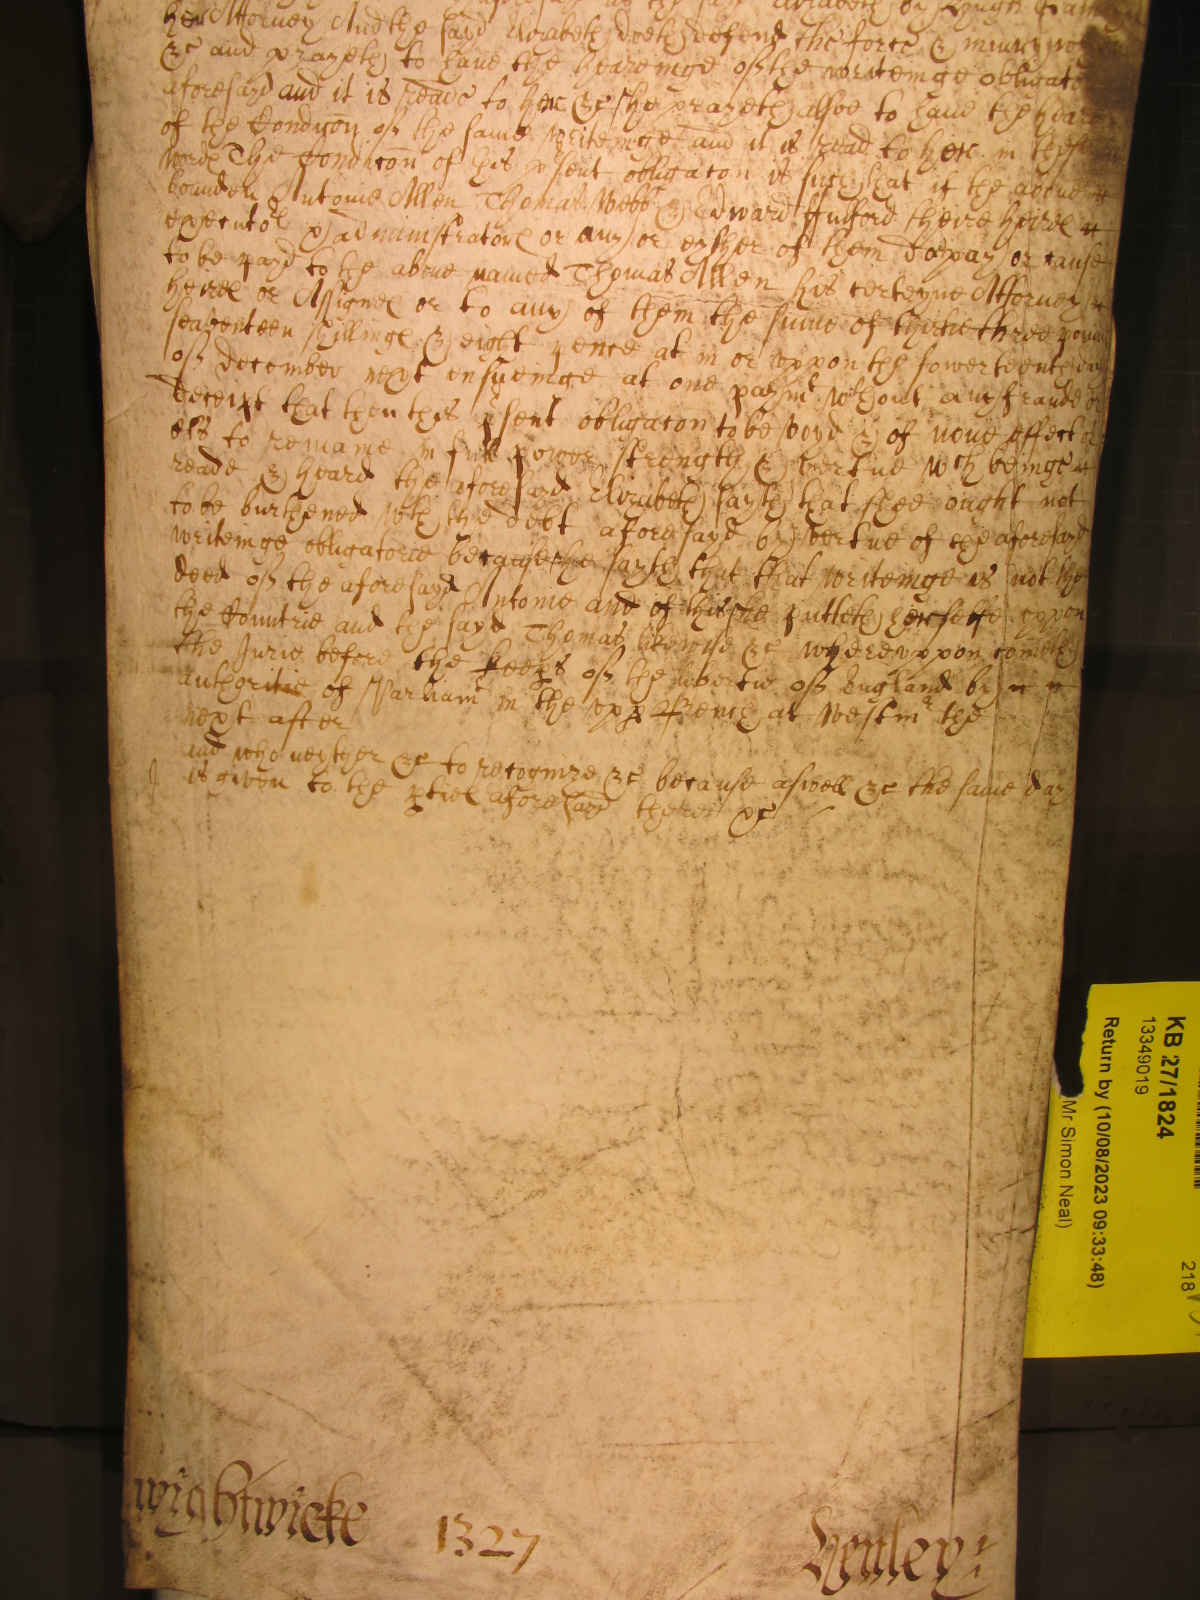 aforesayd at the said Elizabeth by Hugh
her Attorney And the sayd Elizabeth doeth defend the force & iniury
&c and prayeth to have the hearinge of the writeinge obligato
aforesayd and it is reade to her &c she prayeth alsoe to have the hear
of the Condicon of the same writeinge and it is read to her in these
words The Condicon of his psent obligacon is such that if the above
bounden Antonie Allen Thomas Webb & Edward Fulford theire heires
executors administrators or any or eyther of them doe pay or cause
to be payd to the above named Thomas Allen his certeyne Attorney
heires or Assignes or to any of them the sume of thirtie three pound
seaventeen shillings & eight pence at in or uppon the fowerteenth day
of December next ensueinge at one paymt wthout any fraude or
deceipt that then this psent obligacon to be voyd & of none effect or
els to remaine in full power strength & vertue wch beinge
reade & heard the aforesayd Elizabeth sayth that shee ought not
to be burthened wth the debt aforesayd by vertue of the aforesayd
writeinge obligatorie because she sayth that that writeinge is not the
deed of the aforesayd Antonie and of this she putteth herselfe uppon
the Countrie and the sayd Thomas likewise &c whereuppon cometh
the Jurie before the keeps of the libertie of England by
authoritie of Parliamt in the upp Bench at Westmr the
next after
and who neyther &c to recognize &c because aswell &c the same day
is given to the pties aforesayd there &c
Wightwicke 1327 Henley
KB 27/1824
13349019
Return by (10/08/2023 09:33:48)
Mr Simon Neal)
218